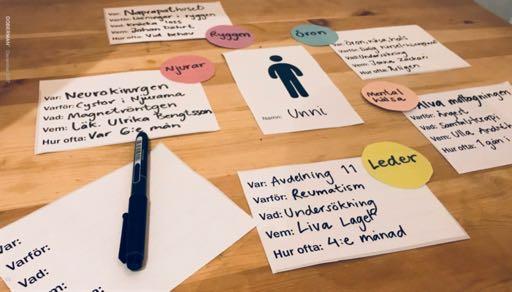 DOBERMAN
Var: Naprapathuset
Varför:
ryggen
Vad: Knäcka loss
Vem: Johan
Hur ofta: Vid behov
Ryggen
Öron
Var: Öron, näsa, hals
Varför: Dålig hörsel
Vad: Undersökning
Vem: Jonna Zäcker
Hur ofta: Årligen
Njurar
Var: Neurokirurgen
Varför: Cystor i Njurarna
Vad: Magnetröntgen
Vem: Läk: Ulrika Bengtsson
Hur ofta: Var 6:e mån
Namn: Unni
Mental
hälsa
mottagningen
Varför: Ångest
Vad: Samtalsterapi
Vem: Ulla
Hur ofta: 1 gån i
Leder
Var: Avdelning 11
Varför: Reumatism
Vad: Undersökning
Vem: Liva Lagel
Hur ofta: 4:e månad
Var:
Varför:
Vad:
Vem: